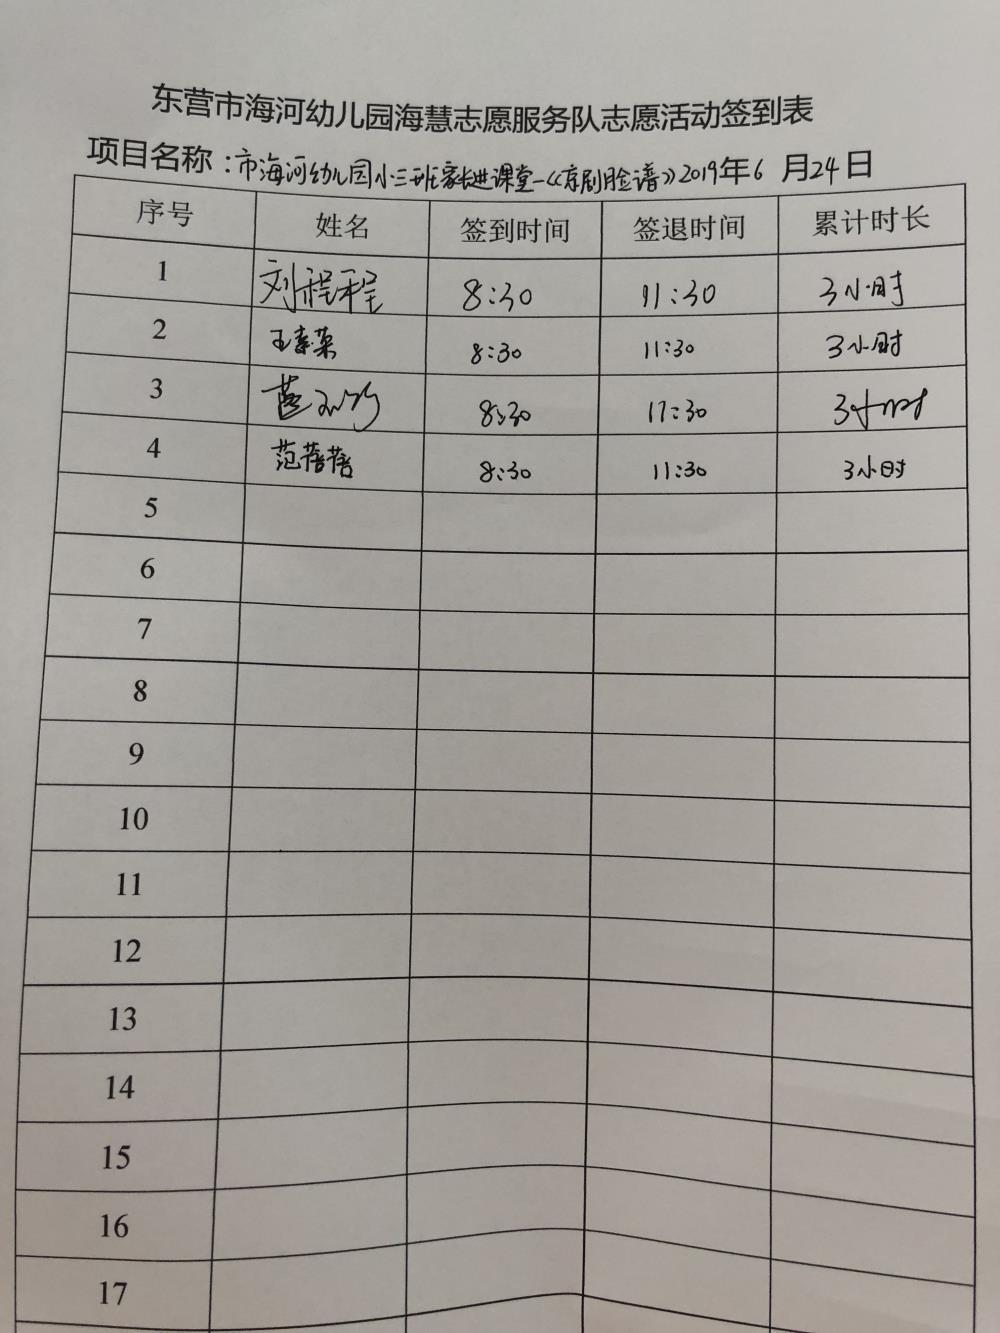 东营市海河幼儿园海慧志愿服务队志愿活动签到表
项目名称：市海河幼儿园小三班家长进课堂-《京剧脸谱》2019年6月24日
序号 姓名 签到时间 签退时间 累计时长
1 刘程程 8:30 11:30 3小时
2 王素荣 8:30 11:30 3小时
3 8:30 11:30 3小时
4 范蓓蓓 8:30 11:30 3小时
5
6
7
8
9
10
11
12
13
14
15
16
17